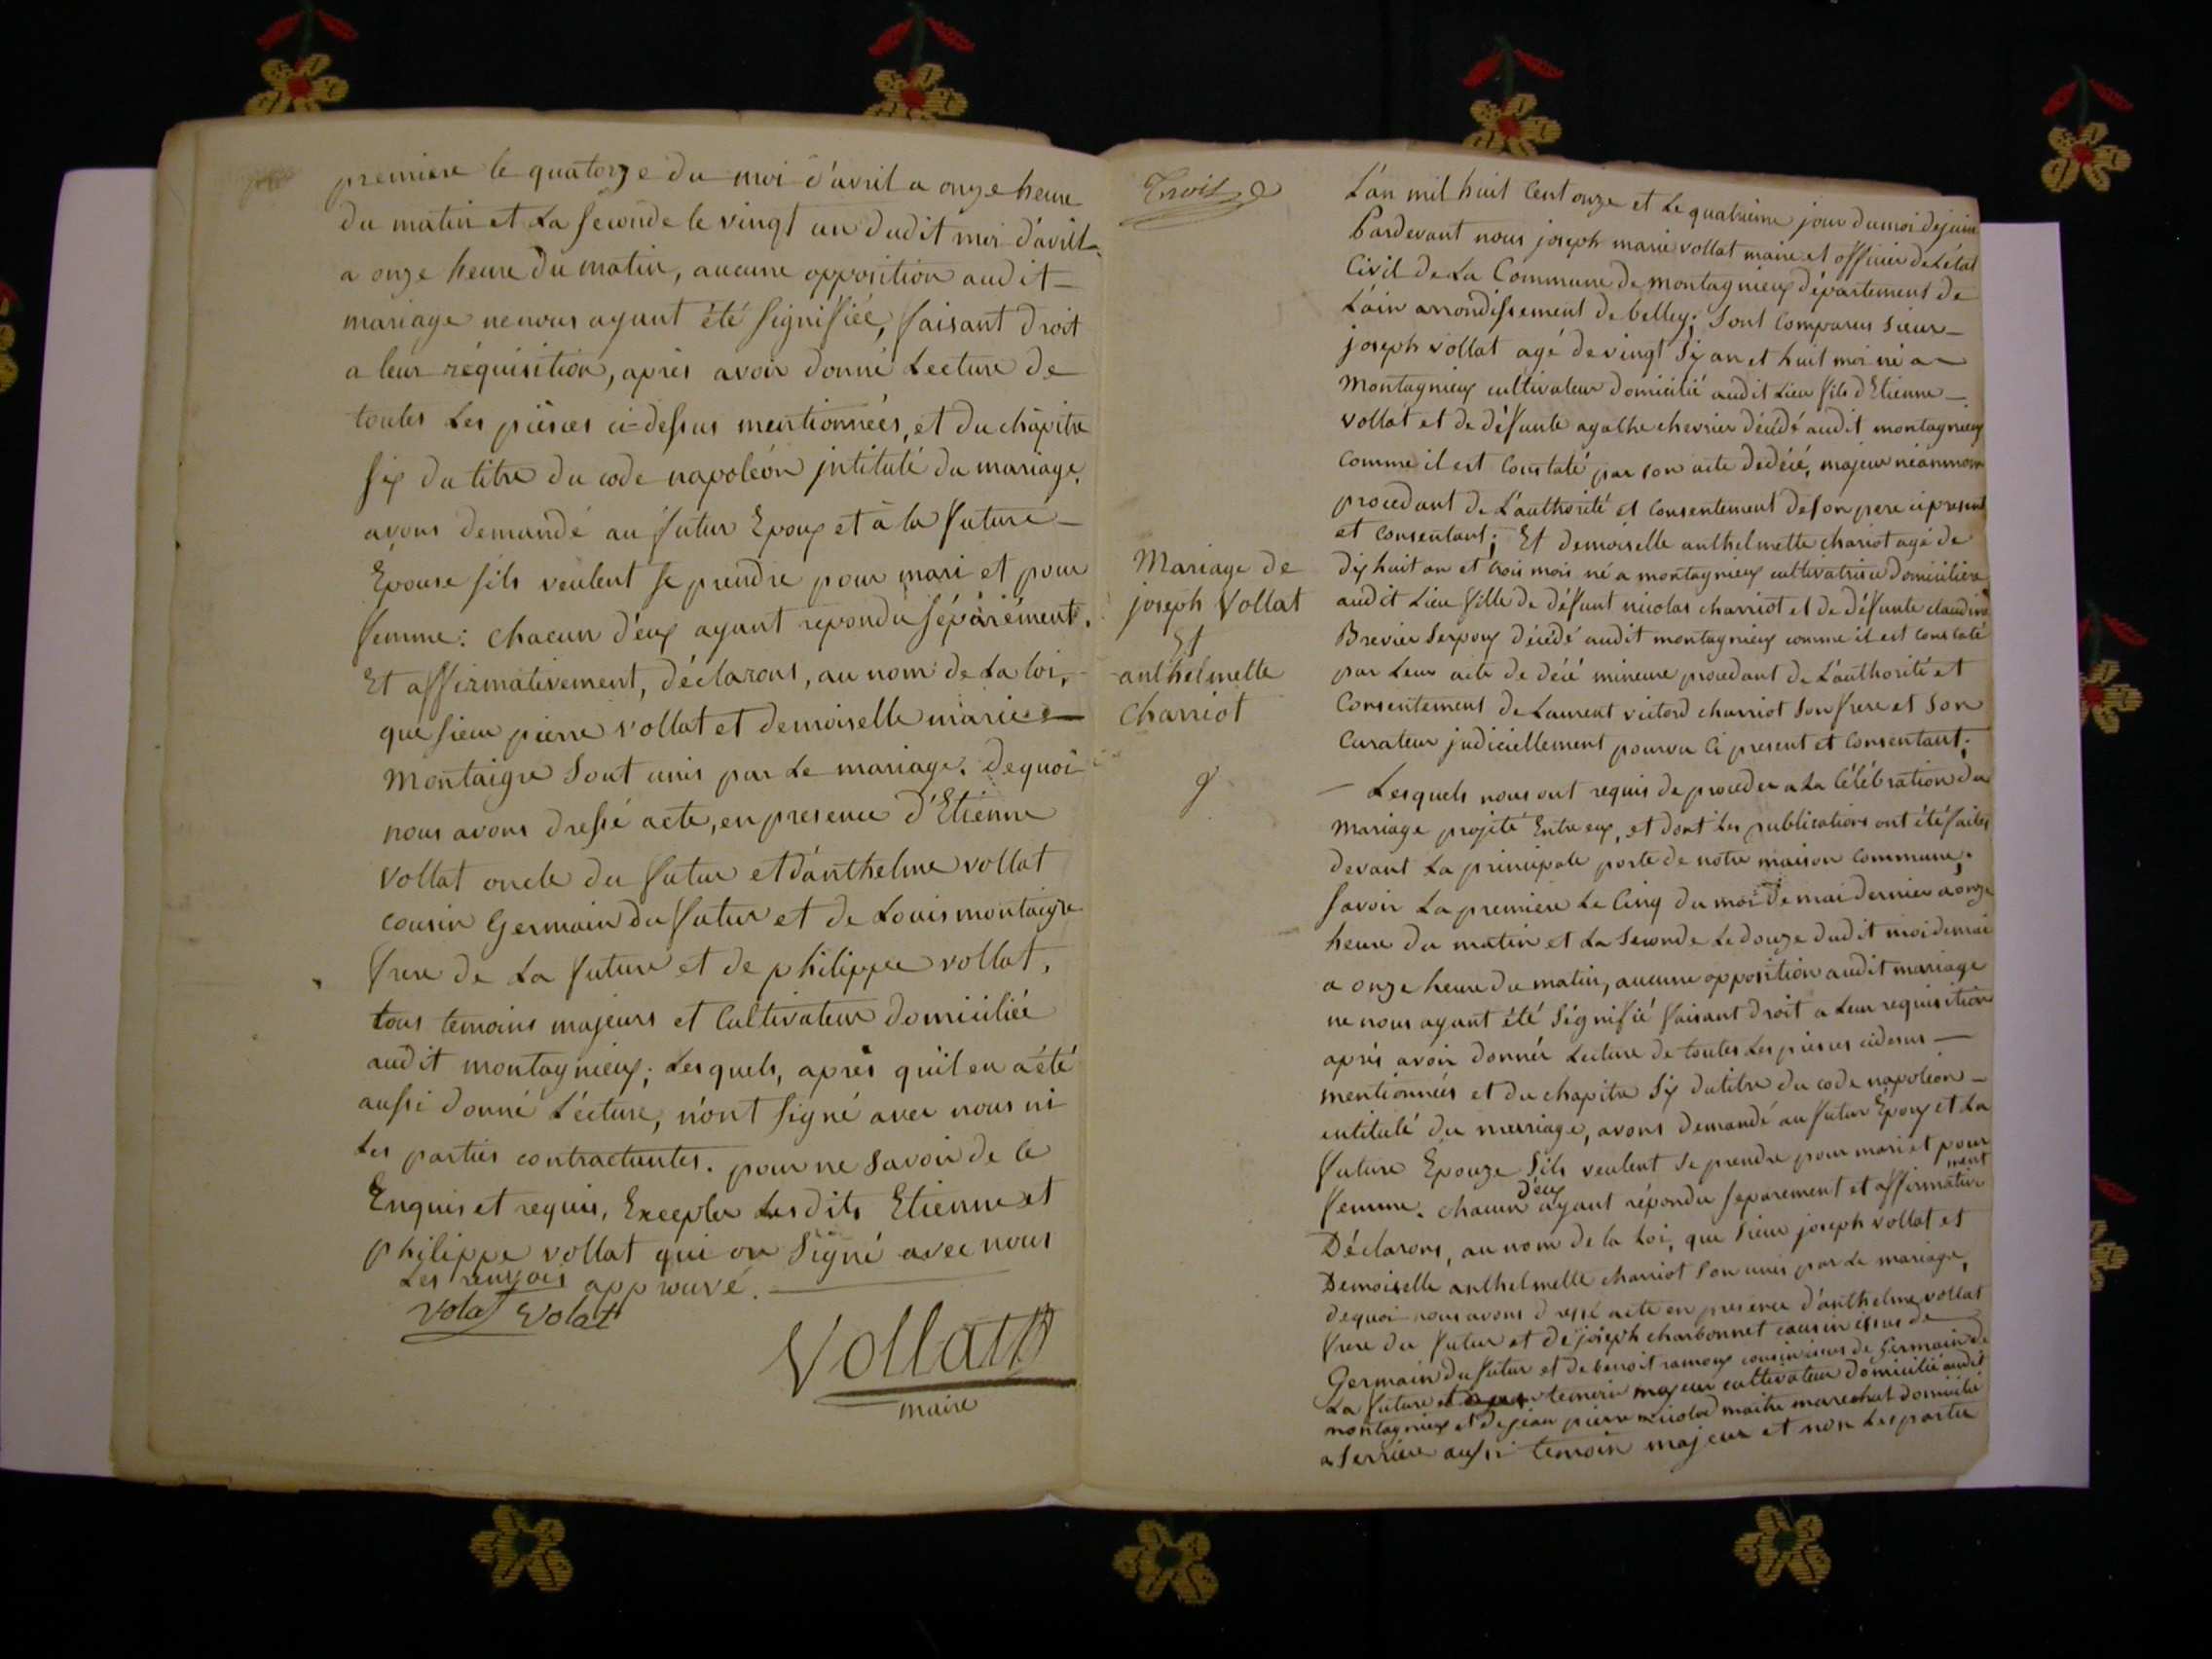 premiere le quatorze du moi d'avril a onze heure
du matin et la seconde le vingt un dudit moi d'avril
a onze heure du matin, aucune opposition audit
mariage ne nous ayant été signifiée, faisant droit
a leur réquisition, après avoir donné Lecture de
toutes Les pièces ci-dessus mentionnées, et du chapitre
six du titre du code napoléon jntitulé du mariage,
avons demandé au futur Epoux et à la future
Épouse sils veulent se prendre pour mari et pour
femme: chacun d'eux ayant repondu séparément.
Et affirmativement, déclarons, au nom de La loi,
que sieur pierre vollat et demoiselle marie
Montaigre sont unis par Le mariage. Dequoi
nous avons dressé acte, en presence d'Etienne
vollat oncle du futur et d'anthelme vollat
cousin Germain du futur et de Louis montaigre
frere de La future et de philippe vollat,
tous temoins majeurs et Cultivateur domiciliée
audit montagnieux; Lesquels, après qu'il en a été
aussi donné Lécture, n'ont signé avec nous ni
Les parties contractantes. pour ne savoir de ce
Enquis et requis, Excepter Lesdits Etienne et
philippe vollat qui on signé avec nous
Les renvois approuvé.
Volat Volat
Vollat
maire
Trois
Mariage de
joseph Vollat
Et
anthelmette
Charriot
L'an mil huit Cent onze et Le quatrieme jour du moi de juin
Pardevant nous joseph marie vollat maire et officier de L'état
Civil de La Commune de montagnieux département de
L'ain arrondissement de belley; Sont Comparus Sieur
joseph vollat agé de vingt six an et huit moi né a
Montagnieux cultivateur domicilié audit Lieu fils d'Etienne
vollat et de défunte agathe chevrier décédé audit montagnieux
comme il est Constaté par son acte dedécé, majeur néanmoin
procedant de L'authorité et Consentement de son pere ci present
et Consentant; Et demoiselle anthelmette chariot agé de
dix huit an et trois mois né a montagnieux cultivatrice domiciliere
audit Lieu fille de défunt nicolas charriot et de défunte claudine
Brevier décédé audit montagnieux comme il est constaté
par Leur acte de décé mineure procedant de L'authorité et
Consentement de Laurent victord charriot son frere et son
Curateur judiciellement pourvu Ci present et Consentant;
Lesquels nous ont requis de proceder a La Célébration du
mariage projeté Entre eux, et dont Les publications ont été faites
devant La principale porte de notre maison Commune;
savoir La premiere Le Cinq du moi de mai dernier a onze
heure du matin et La Seconde Le douze dudit moi de mai
a onze heure du matin, aucune opposition audit mariage
ne nous ayant été Signifié faisant droit a Leur requisition
après avoir donnér Lecture de toutes Les pieces cidesus
mentionnées et du chapitre Six du titre du code napoléon
intitulé du mariage, avons demandé au futur Époux et La
future Epouze Sils veulent se prendre pour mari et pour
femme. chacun d'eux ayant répondu separement et affirmativement
Déclarons, au nom de la Loi, que sieur joseph vollat et
Demoiselle anthelmette charriot Son unis par Le mariage,
dequoi nous avons dressé acte en presence d'anthelme vollat
frere du futur et de joseph charbonnet cousin issus de
Germain du futur et de benoit ramoux cousin issus de Germain de
La future temoin majeur cultivateur domicilié audit
montagnieux et de jean pierre maitre marechal domicilié
a Serriere aussi temoin majeur et non Les partie